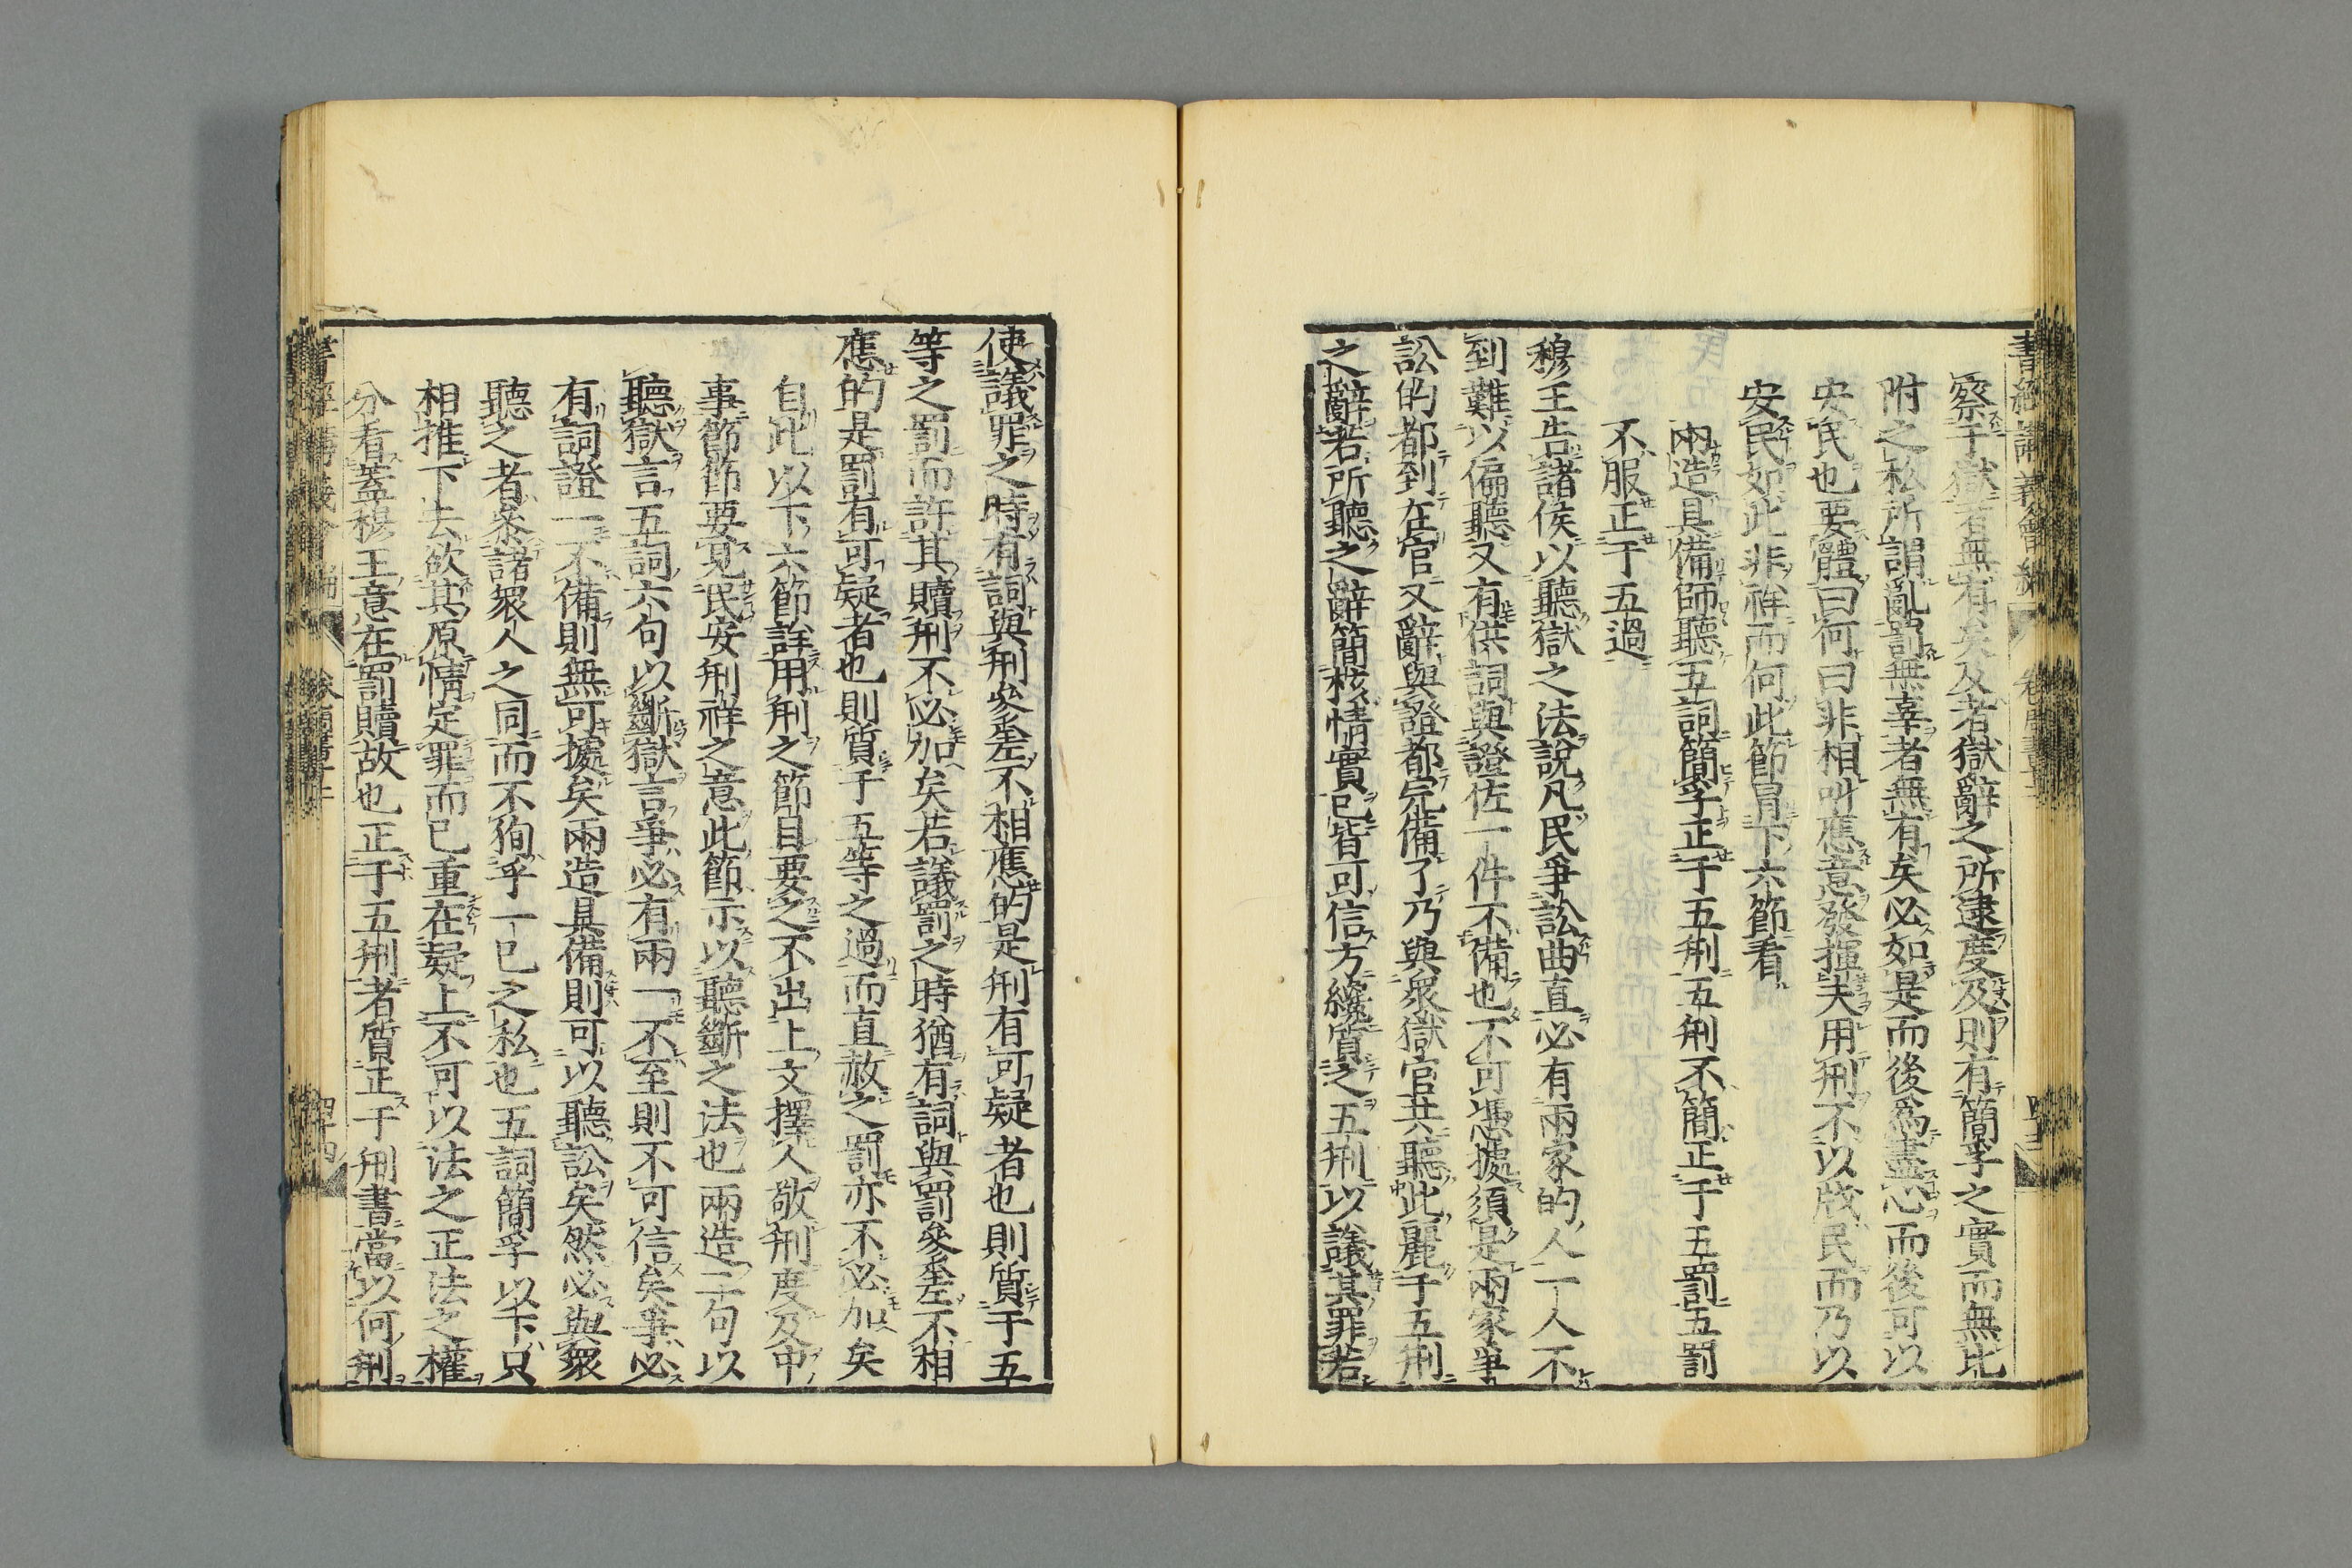 察于獄者無有矣及者獄辭之所逮度及則有簡孚之實而無比
附之私所謂亂罰無辜者無有矣必如是而後爲盡心而後可以
安民也要體曰何曰非相叫應意發揮夫用刑不以戕民而乃以
安民如此非祥而何此節冒下六節看
兩造具備師聽五詞簡孚正于五刑五刑不簡正于五罰五罰
不服正于五過
穆王告諸侯以聽獄之法說凡民爭訟曲直必有兩家的人一人不
到難以偏聽又有供詞與證佐一件不備也不可憑據須是兩家爭
訟的都到在官又辭與證都完備了乃與衆獄官共聽此麗于五刑
之辭若所聽之辭簡核情實已皆可信方纔質之五刑以議其罪若
使議罪之時有詞與刑參差不相應的是刑有可疑者也則質于五
等之罰而許其贖刑不必加矣若議罰之時猶有詞與罰參差不相
應的是罰有可疑者也則質于五等之過而直赦之罰亦不必加矣
自此以下六節詳用刑之節目要之不出上文擇人敬刑度及中
事節節要見民安刑祥之意此節示以聽斷之法也兩造二句以
聽獄言五詞六句以斷獄言爭必有兩一不至則不可信矣事必
有詞證一不備則無可據矣兩造具備則可以聽訟矣然必與衆
聽之者參諸衆人之同而不狥乎一己之私也五詞簡孚以下只
相推下去欲其原情定罪而已重在疑上不可以法之正法之權
分看蓋穆王意在罰贖故也正于五刑者質正于刑書當以何刑